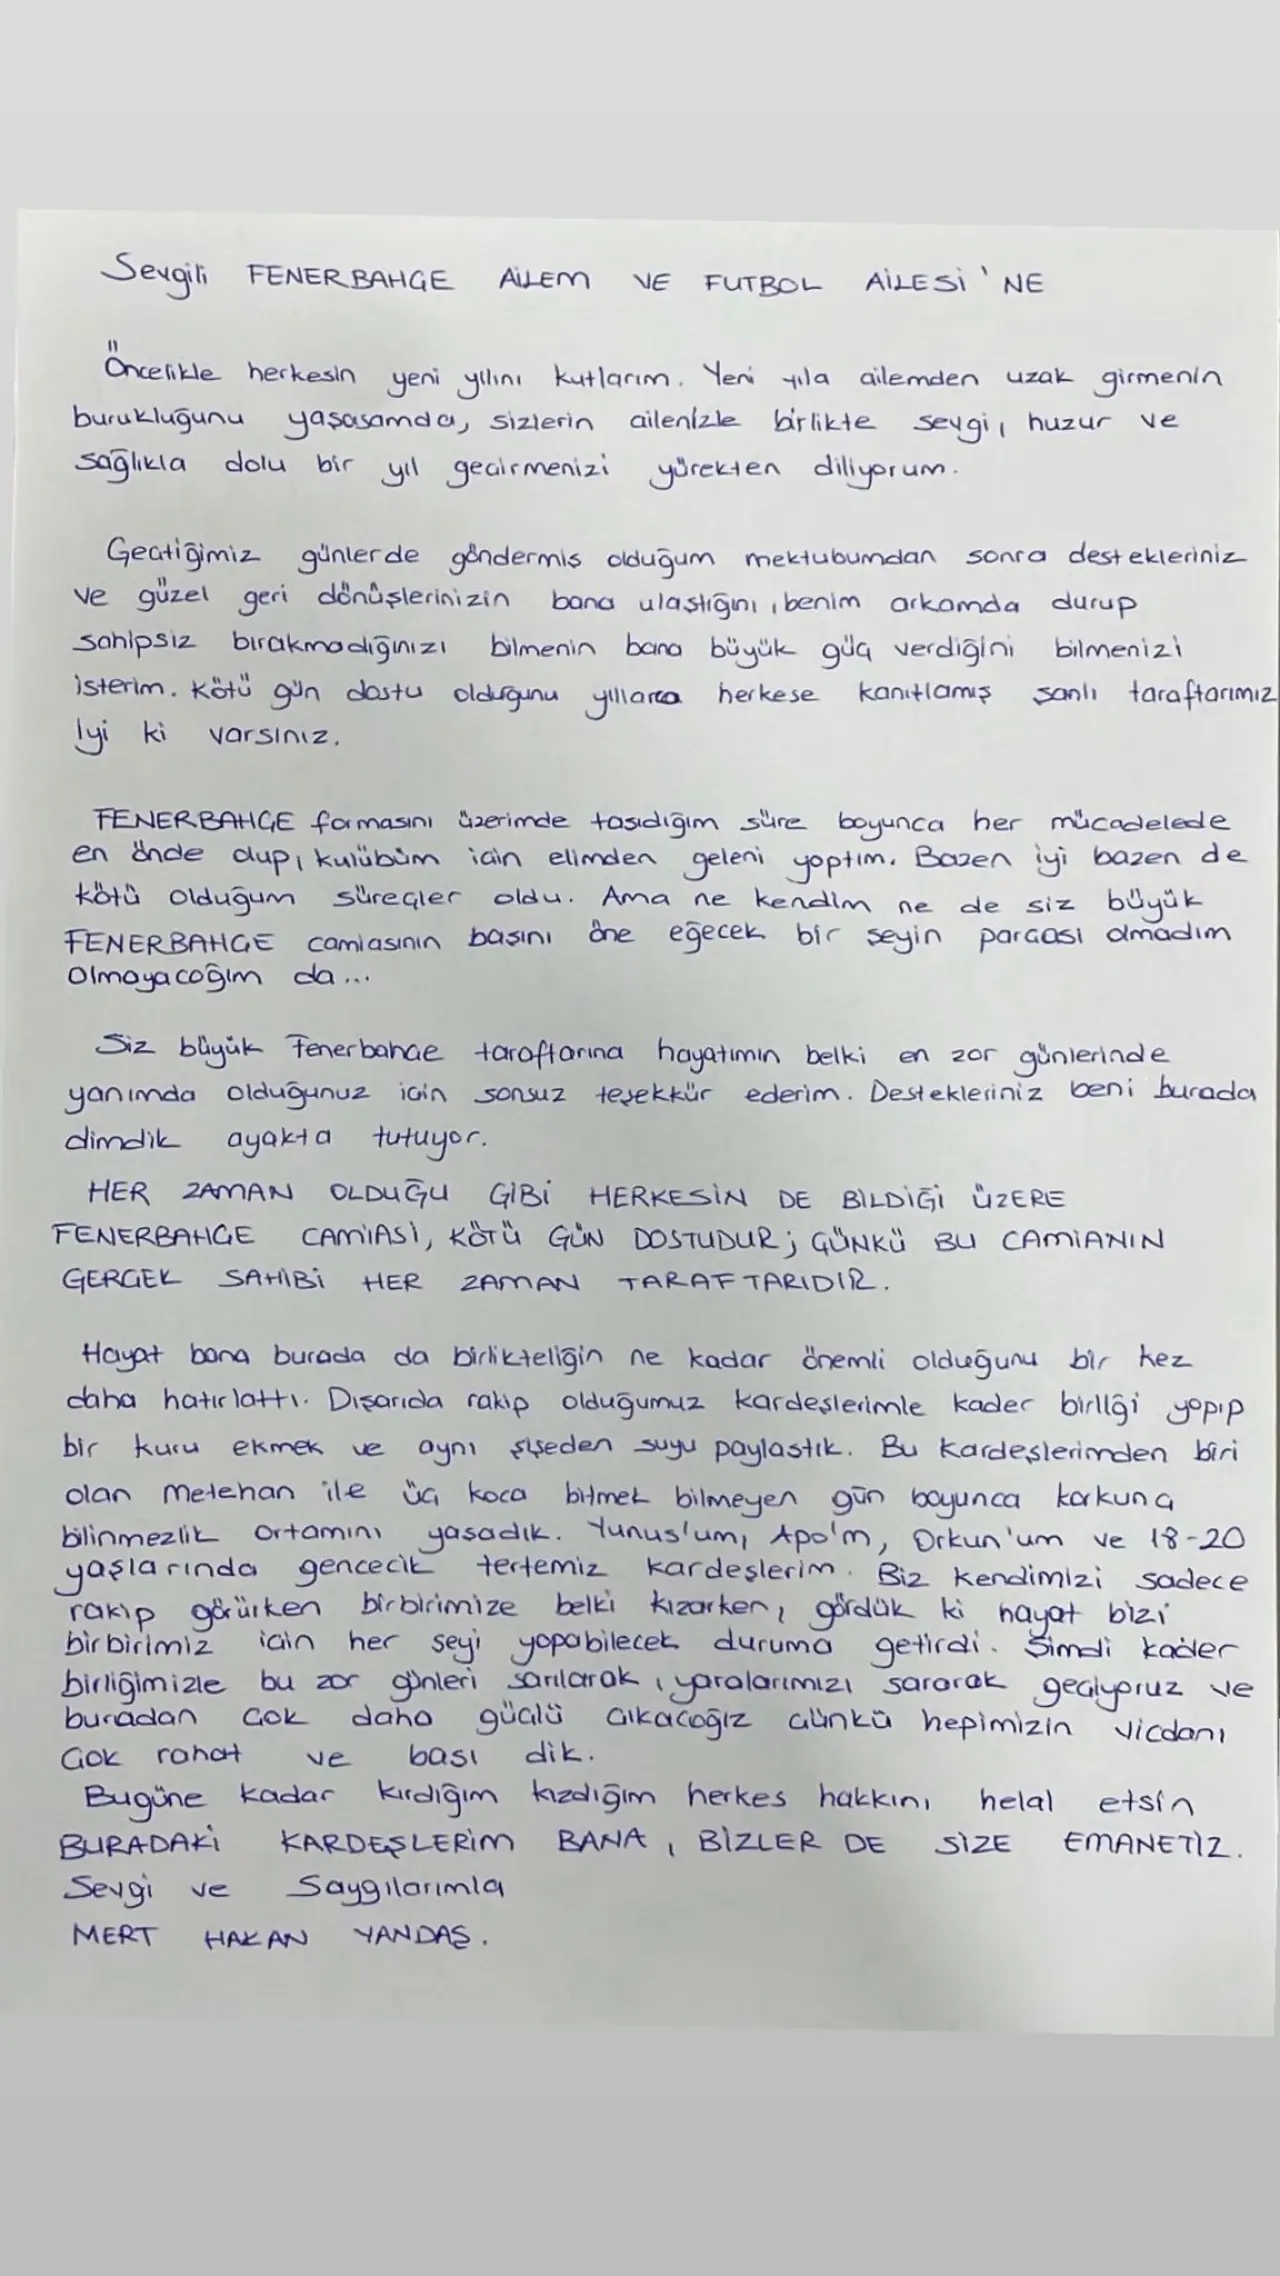 Sevgili FENERBAHÇE AİLEM VE FUTBOL AİLESİ'NE
Öncelikle herkesin yeni yılını kutlarım. Yeni yıla ailemden uzak girmenin
burukluğunu yaşasamda, sizlerin ailenizle birlikte sevgi, huzur ve
sağlıkla dolu bir yıl geçirmenizi yürekten diliyorum.
Geçtiğimiz günlerde göndermiş olduğum mektubumdan sonra destekleriniz
ve güzel geri dönüşlerinizin bana ulaştığını, benim arkamda durup
sahipsiz bırakmadığınızı bilmenin bana büyük güç verdiğini bilmenizi
isterim. Kötü gün dostu olduğunu yıllarca herkese kanıtlamış şanlı taraftarımız
İyi ki varsınız.
FENERBAHÇE formasını üzerimde taşıdığım süre boyunca her mücadelede
en önde olup, kulübüm için elimden geleni yaptım. Bazen iyi bazen de
kötü olduğum süreçler oldu. Ama ne kendim ne de siz büyük
FENERBAHÇE camiasının başını öne eğecek bir şeyin parçası olmadım
Olmayacağım da...
Siz büyük Fenerbahçe taraftarına hayatımın belki en zor günlerinde
yanımda olduğunuz için sonsuz teşekkür ederim. Destekleriniz beni burada
dimdik ayakta tutuyor.
HER ZAMAN OLDUĞU GİBİ HERKESİN DE BİLDİĞİ ÜZERE
FENERBAHÇE CAMİASİ, KÖTÜ GÜN DOSTUDUR; ÇÜNKÜ BU CAMİANIN
GERÇEK SAHİBİ HER ZAMAN TARAFTARIDIR.
Hayat bana burada da birlikteliğin ne kadar önemli olduğunu bir kez
daha hatırlattı. Dışarıda rakip olduğumuz kardeşlerimle kader birliği yapıp
bir kuru ekmek ve aynı şişeden suyu paylaştık. Bu kardeşlerimden biri
olan Metehan ile üç koca bitmek bilmeyen gün boyunca korkunç
bilinmezlik ortamını yaşadık. Yunus'um, Apo'm, Orkun'um ve 18-20
yaşlarında gencecik tertemiz kardeşlerim. Biz kendimizi sadece
rakip görürken birbirimize belki kızarken, gördük ki hayat bizi
birbirimiz için her şeyi yapabilecek duruma getirdi. Şimdi kader
birliğimizle bu zor günleri sarılarak, yaralarımızı sararak geçiyoruz ve
buradan çok daha güçlü çıkacağız çünkü hepimizin vicdanı
çok rahat ve başı dik.
Bugüne kadar kırdığım kızdığım herkes hakkını helal etsin
BURADAKİ KARDEŞLERİM BANA, BİZLER DE SİZE EMANETİZ.
Sevgi ve Saygılarımla
MERT HAKAN YANDAŞ.